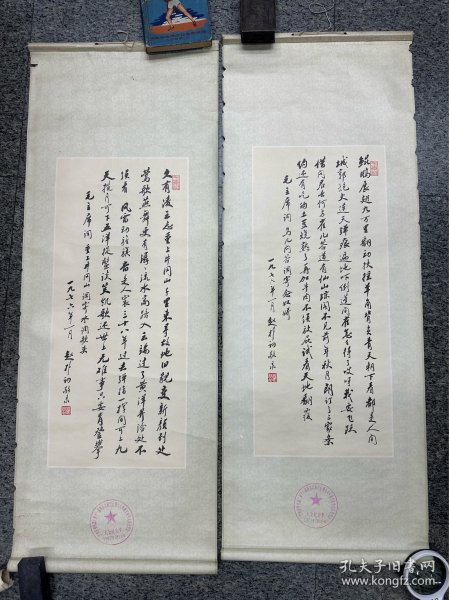 鲲鹏展翅九万里翻动扶摇羊角背负青天朝下看都是人间
城郭炮火连天弹痕遍地吓倒蓬间雀怎么得了哎呀我要飞跃
借问君去何方雀儿答道有仙山琼阁不见前年秋月朗订了三家条
约还有吃的土豆烧熟了再加牛肉不须放屁试看天地翻覆
毛主席词 鸟儿问答 调寄念奴娇
一九七六年一月 赵朴初敬录
久有凌云志重上井冈山千里来寻故地旧貌变新颜到处
莺歌燕舞更有潺潺流水高路入云端过了黄洋界险处不
须看 风雷动旌旗奋是人寰三十八年过去弹指一挥间可上九
天揽月可下五洋捉鳖谈笑凯歌还世上无难事只要肯登攀
毛主席词 重上井冈山 调寄水调歌头
一九七六年一月 赵朴初敬录
孔夫子旧书网
www.kongfz.com